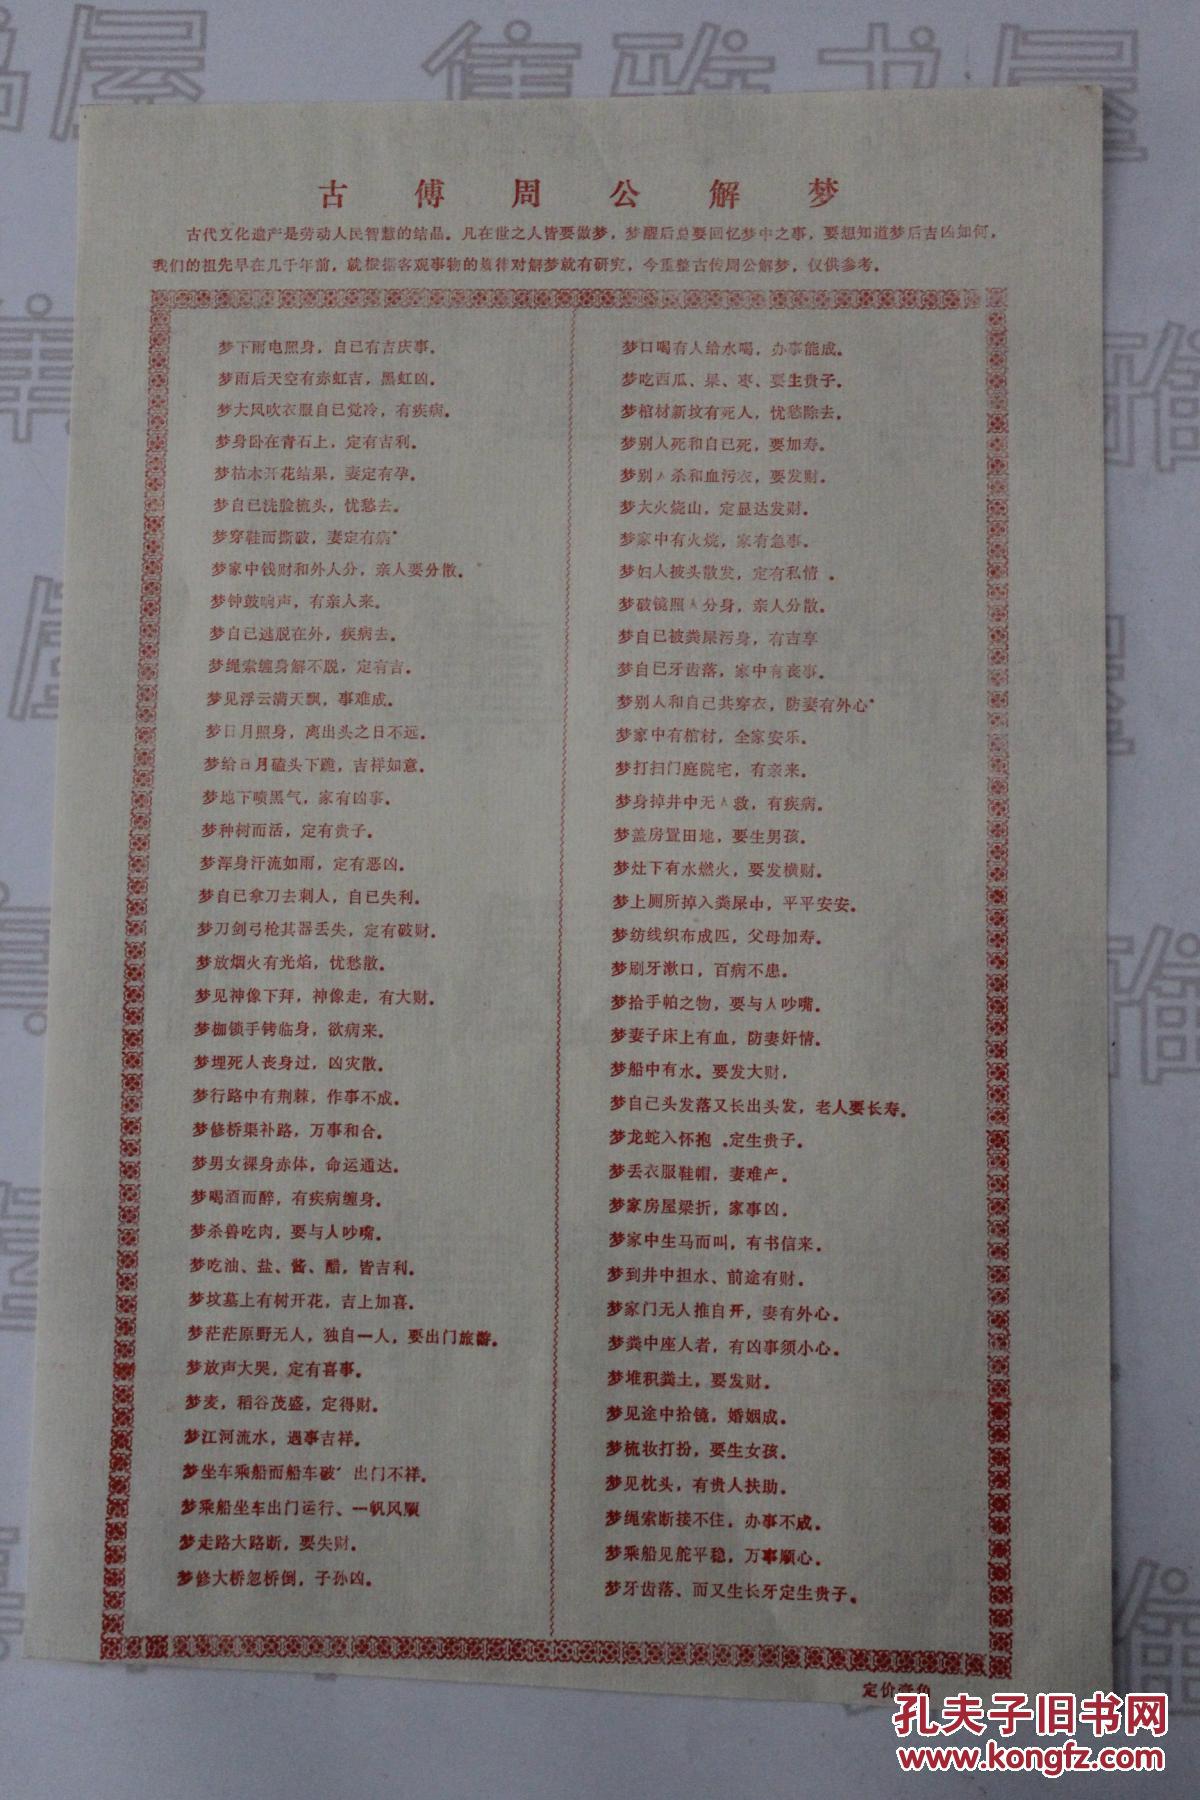 古傅周公解梦
古代文化遗产是劳动人民智慧的结晶。凡在世之人皆要做梦，梦醒后总要回忆梦中之事，要想知道梦后吉凶如何，
我们的祖先早在几千年前，就根据客观事物的规律对解梦就有研究，今重整古传周公解梦，仅供参考。
梦下雨电照身，自已有吉庆事。
梦雨后天空有赤虹吉，黑虹凶。
梦大风吹衣服自已觉冷，有疾病。
梦身卧在青石上，定有吉利。
梦枯木开花结果，妻定有孕。
梦自已洗脸梳头，忧愁去。
梦穿鞋而撕破，妻定有病
梦家中钱财和外人分，亲人要分散。
梦钟鼓响声，有亲人来。
梦自已逃脱在外，疾病去。
梦绳索缠身解不脱，定有吉。
梦见浮云满天飘，事难成。
梦日月照身，离出头之日不远。
梦给日月磕头下跪，吉祥如意。
梦地下喷黑气，家有凶事。
梦种树而活，定有贵子。
梦浑身汗流如雨，定有恶凶。
梦自已拿刀去刺人，自已失利。
梦刀剑弓枪其器丢失，定有破财。
梦放烟火有光焰，忧愁散。
梦见神像下拜，神像走，有大财。
梦枷锁手铐临身，欲病来。
梦埋死人丧身过，凶灾散。
梦行路中有荆棘，作事不成。
梦修桥渠补路，万事和合。
梦男女裸身赤体，命运通达。
梦喝酒而醉，有疾病缠身。
梦杀兽吃肉，要与人吵嘴。
梦吃油、盐、酱、醋，皆吉利。
梦坟墓上有树开花，吉上加喜。
梦茫茫原野无人，独自一人，要出门旅游。
梦放声大哭，定有喜事。
梦麦，稻谷茂盛，定得财。
梦江河流水，遇事吉祥。
梦坐车乘船而船车破 出门不祥。
梦乘船坐车出门运行、一帆风顺
梦走路大路断，要失财。
梦修大桥忽桥倒，子孙凶。
梦口喝有人给水喝，办事能成。
梦吃西瓜、果、枣、要生贵子。
梦棺材新坟有死人，忧愁除去。
梦别人死和自已死，要加寿。
梦别人杀和血污衣，要发财。
梦大火烧山，定显达发财。
梦家中有火烧，家有急事。
梦妇人披头散发，定有私情 。
梦破镜照人分身，亲人分散。
梦自已被粪屎污身，有吉享
梦自已牙齿落，家中有丧事。
梦别人和自己共穿衣，防妻有外心
梦家中有棺材，全家安乐。
梦打扫门庭院宅，有亲来。
梦身掉井中无人救，有疾病。
梦盖房置田地，要生男孩。
梦灶下有水燃火，要发横财。
梦上厕所掉入粪屎中，平平安安。
梦纺线织布成匹，父母加寿。
梦刷牙漱口，百病不患。
梦拾手帕之物，要与人吵嘴。
梦妻子床上有血，防妻奸情。
梦船中有水。要发大财，
梦自己头发落又长出头发，老人要长寿。
梦龙蛇入怀抱 。定生贵子。
梦丢衣服鞋帽，妻难产。
梦家房屋梁折，家事凶。
梦家中生马而叫，有书信来。
梦到井中担水、前途有财。
梦家门无人推自开，妻有外心。
梦粪中座人者，有凶事须小心。
梦堆积粪土，要发财。
梦见途中拾镜，婚姻成。
梦梳妆打扮，要生女孩。
梦见枕头，有贵人扶助。
梦绳索断接不住，办事不成。
梦乘船见舵平稳，万事顺心。
梦牙齿落、而又生长牙定生贵子。
定价壹角
孔夫子旧书网
www.kongfz.com
雅书屋